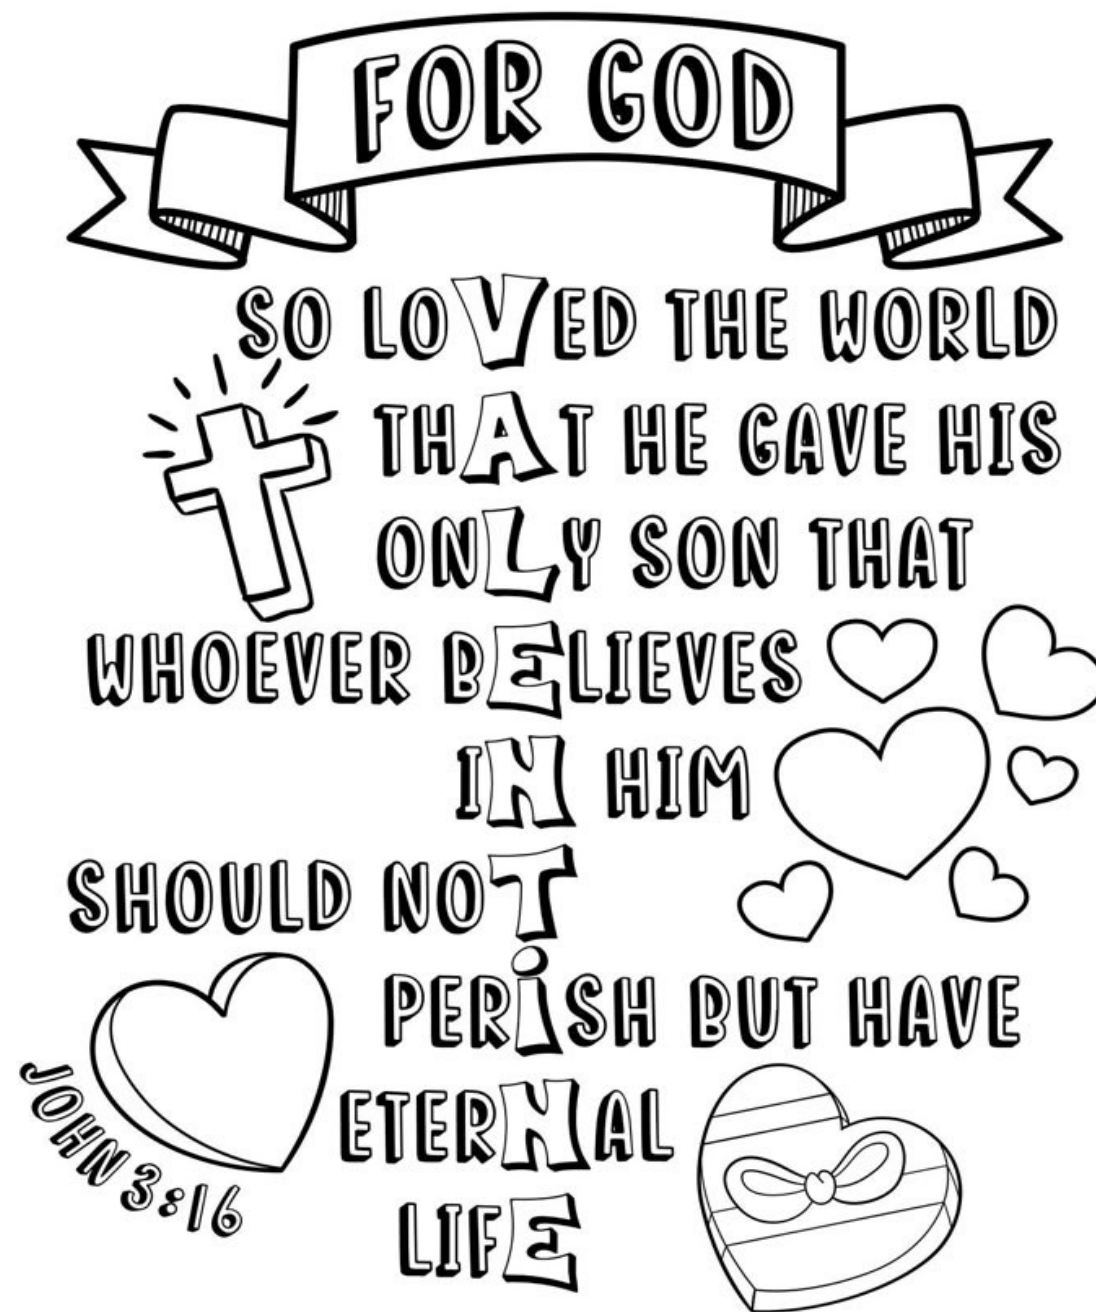 FOR GOD
SO LOVED THE WORLD
THAT HE GAVE HIS
ONLY SON THAT
WHOEVER BELIEVES
IN HIM
SHOULD NOT
PERiSH BUT HAVE
ETERNAL
LIFE
JOHN 3:16